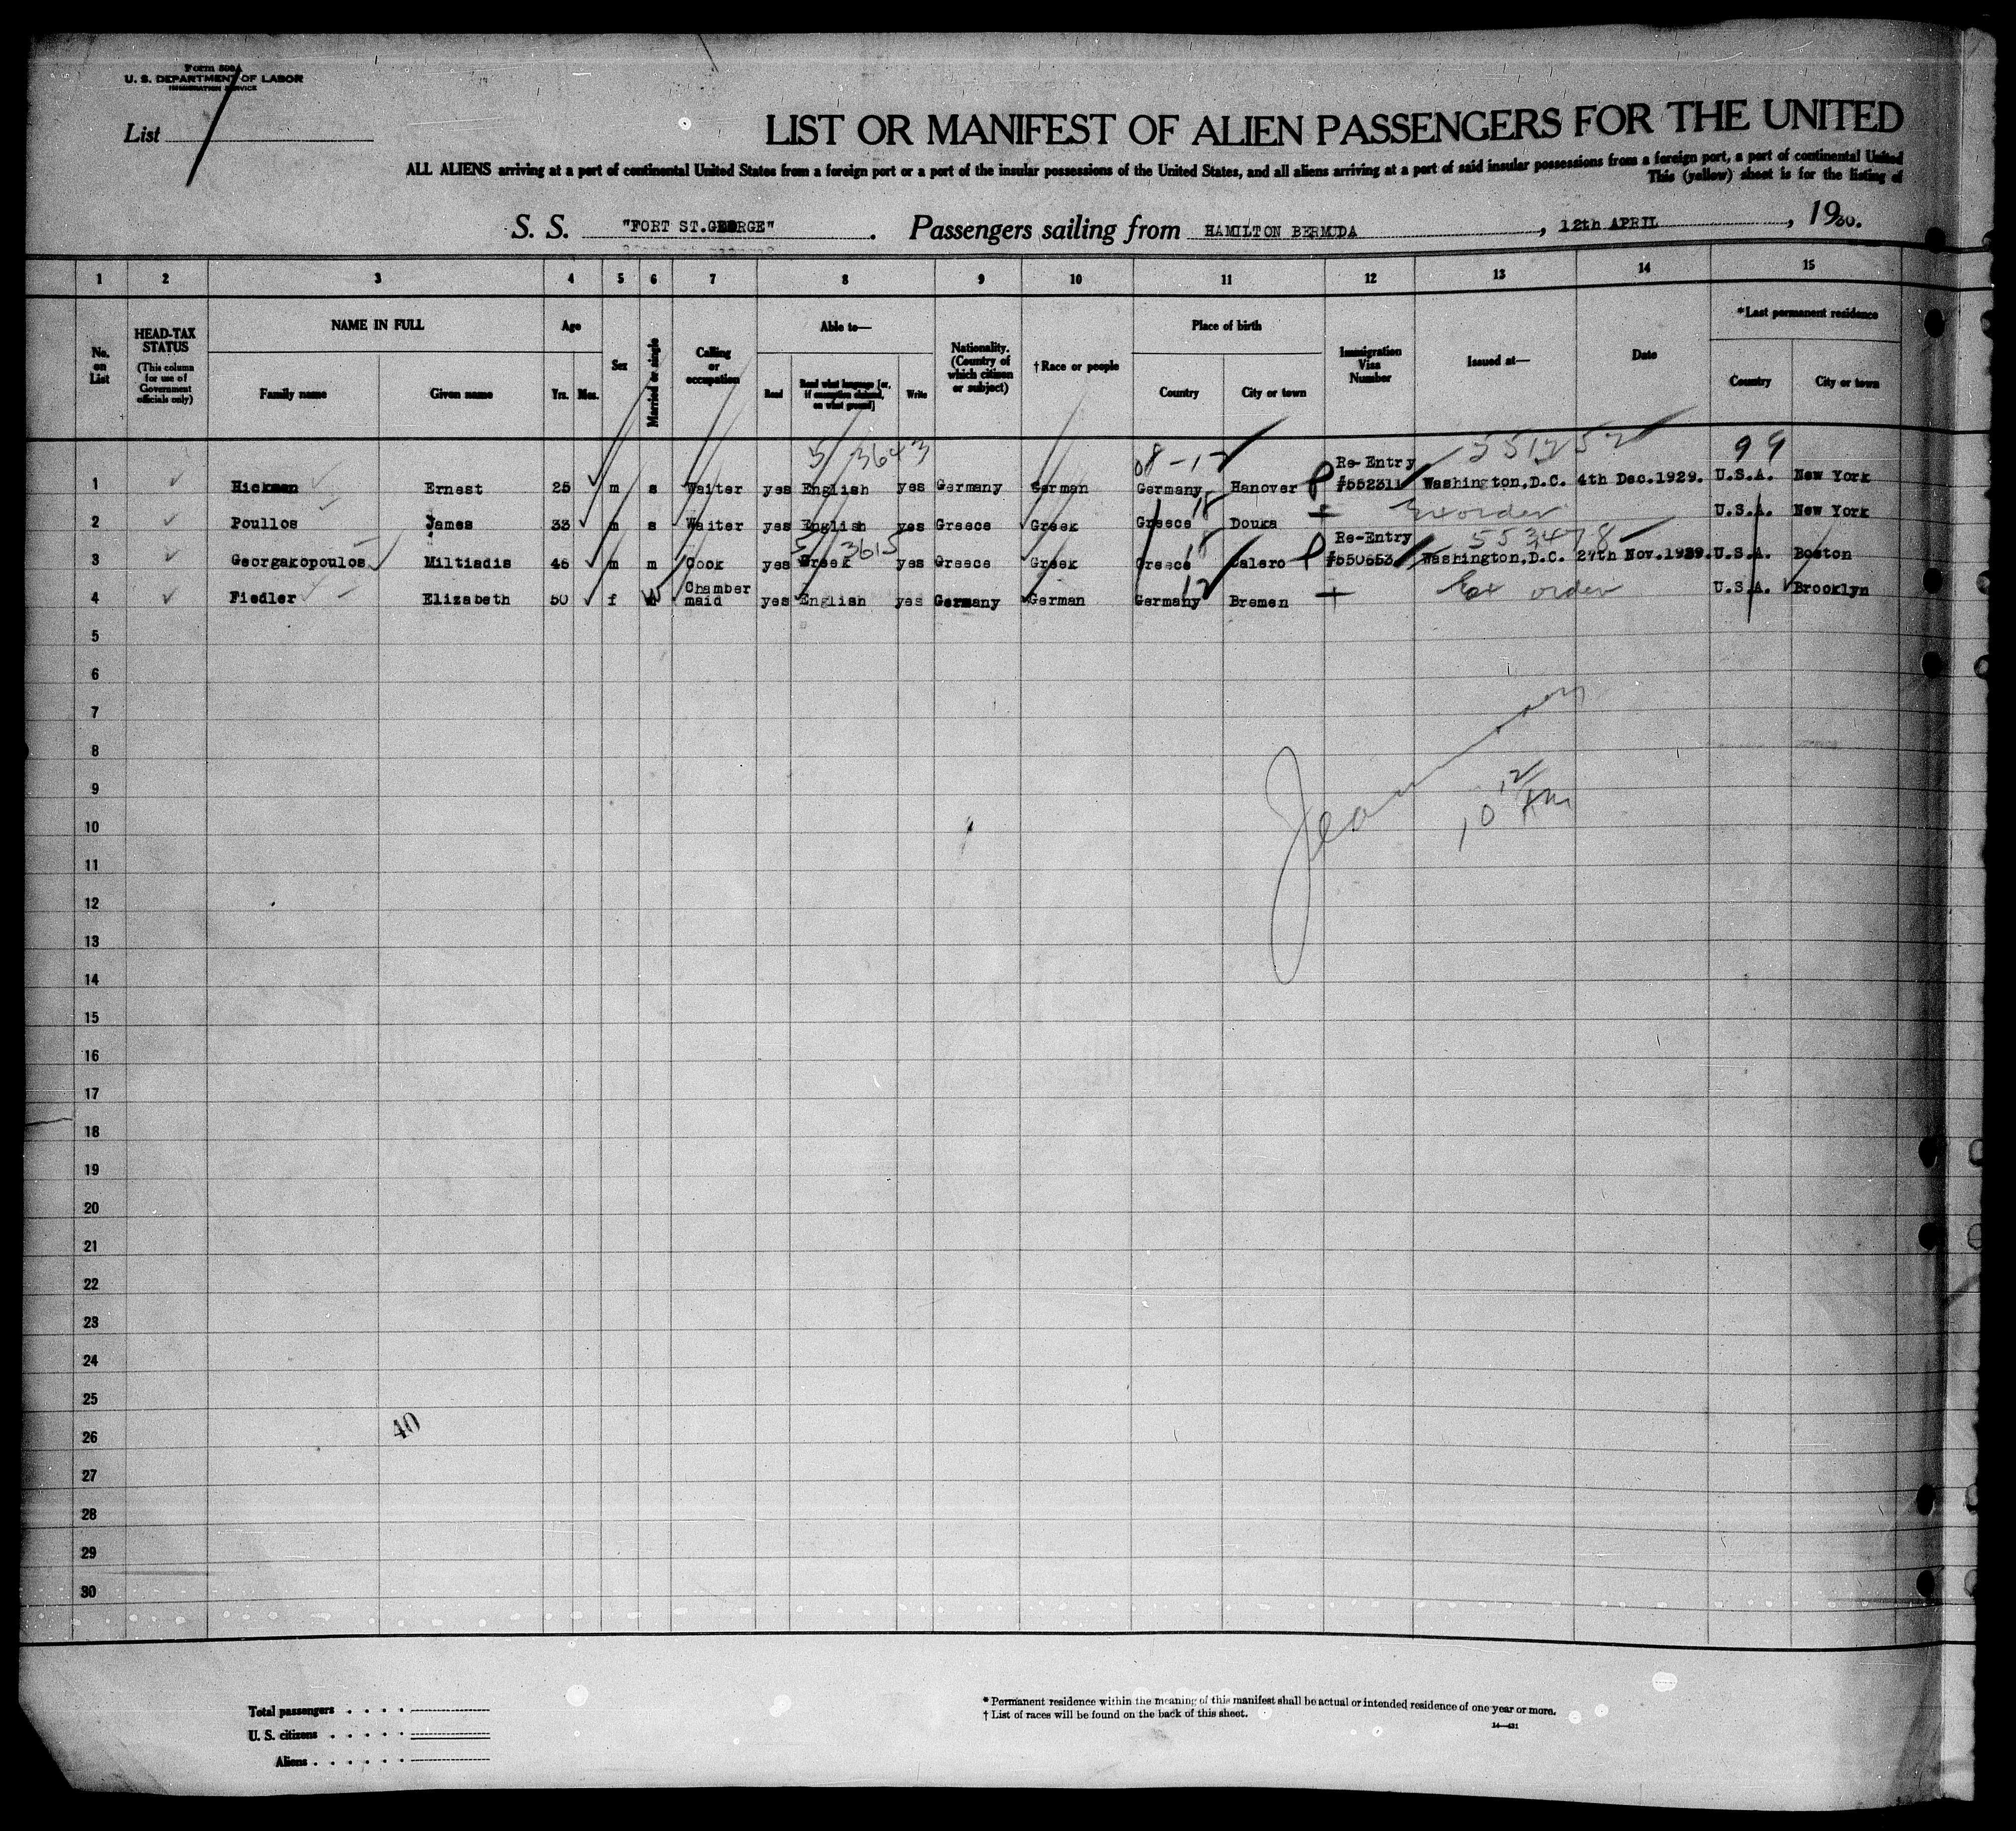 Form 500A
U. S. DEPARTMENT OF LABOR
IMMIGRATION SERVICE
List
LIST OR MANIFEST OF ALIEN PASSENGERS FOR THE UNITED
ALL ALIENS arriving at a port of continental United States from a foreign port or a port of the insular possessions of the United States, and all aliens arriving at a port of said insular possessions from a foreign port, a port of continental United
This (yellow) sheet is for the listing of
S. S. "FORT ST.GEORGE" . Passengers sailing from HAMILTON BERMUDA , 12th APRIL , 1930.
1 2 3 4 5 6 7 8 9 10 11 12 13 14 15
No. on List
HEAD-TAX STATUS
(This column for use of Government officials only)
NAME IN FULL
Family name Given name
Age
Yrs. Mos.
Sex
Married or single
Calling or occupation
Able to—
Read Read what language [or, if exemption claimed, on what ground] Write
Nationality. (Country of which citizen or subject)
† Race or people
Place of birth
Country City or town
Immigration Visa Number
Issued at—
Date
*Last permanent residence
Country City or town
5/ 3643 551252 99
1 Hickman Ernest 25 m s Waiter yes English yes Germany German Germany Hanover Re-Entry #552311 Washington,D.C. 4th Dec.1929. U.S.A. New York
2 Poullos James 33 m s Waiter yes English yes Greece Greek Greece Douka Ex order U.S.A. New York
5/ 3615 553478
3 Georgakopoulos Miltiadis 46 m m Cook yes Greek yes Greece Greek Greece Calero Re-Entry #550653 Washington,D.C. 27th Nov.1929. U.S.A. Boston
4 Fiedler Elizabeth 50 f W Chamber maid yes English yes Germany German Germany Bremen Ex order U.S.A. Brooklyn
5
6
7
8
9
10
11
12
13
14
15
16
17
18
19
20
21
22
23
24
25
26
40
27
28
29
30
Total passengers . . . .
U. S. citizens . . . . .
Aliens . . . . . .
* Permanent residence within the meaning of this manifest shall be actual or intended residence of one year or more.
† List of races will be found on the back of this sheet.
14—421